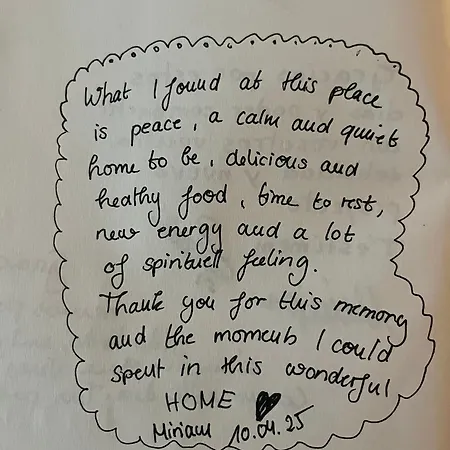 What I found at this place
is peace, a calm and quiet
home to be, delicious and
healthy food, time to rest,
new energy and a lot
of spirituell feeling.
Thank you for this memory
and the moments I could
spent in this wonderful
HOME
Miriam 10.01.25